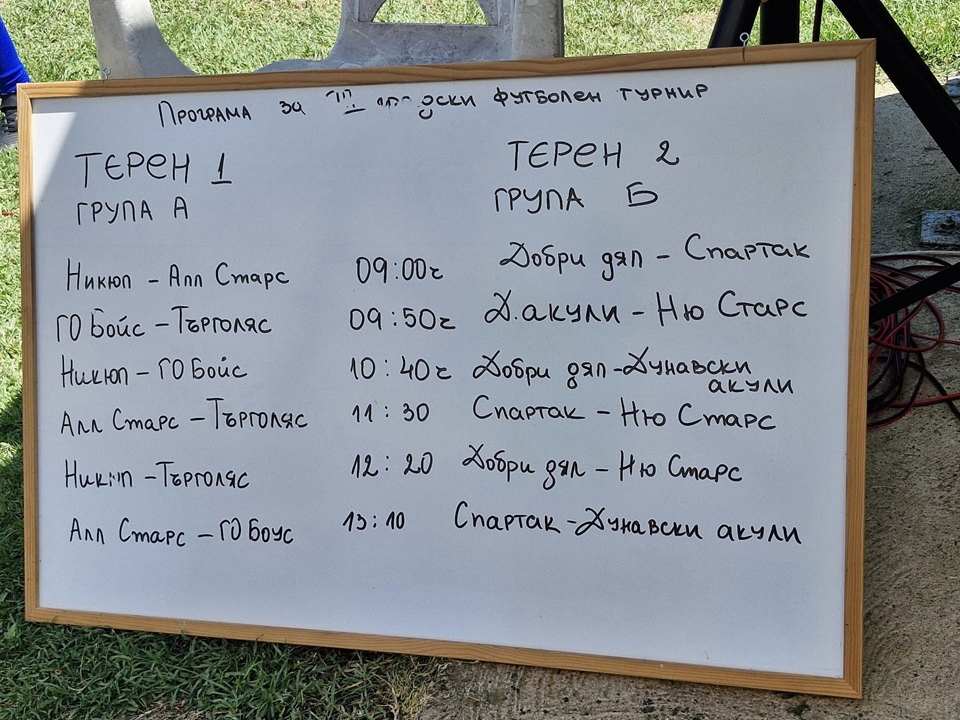 Програма за III футболен турнир
ТЕРЕН 1
ГРУПА А
ТЕРЕН 2
ГРУПА Б
Никюп – Алл Старс 09:00г Добри дял – Спартак
ГО Бойс – Търголяс 09:50г Д. акули – Ню Старс
Никюп – ГО Бойс 10:40г Добри дял – Дунавски
акули
Алл Старс – Търголяс 11:30 Спартак – Ню Старс
Никюп – Търголяс 12:20 Добри дял – Ню Старс
Алл Старс – ГО Боус 13:10 Спартак – Дунавски акули